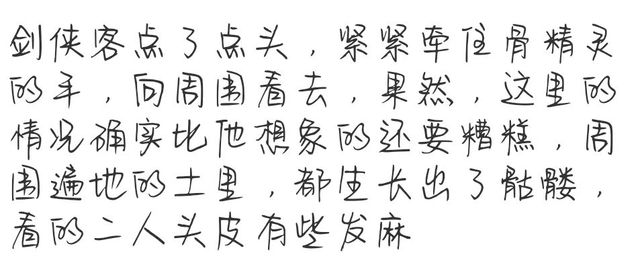 剑侠客点了点头，紧紧牵住骨精灵
的手，向周围看去，果然，这里的
情况确实比他想象的还要糟糕，周
围遍地的土里，都生长出了骷髅，
看的二人头皮有些发麻